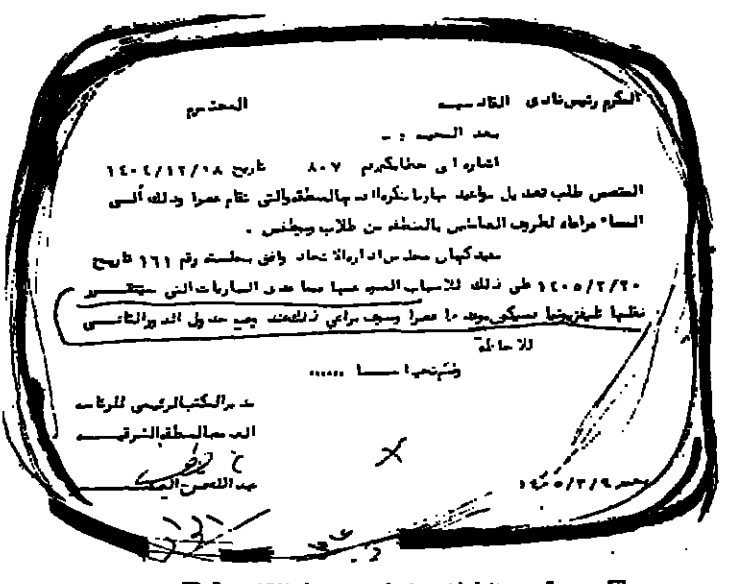 المكرم رئيس نادي القادسيه المحترم
بعد التحيه : -
اشاره الى خطابكم رقم ٨٠٧ تاريخ ١٤٠٤/١٢/١٨
المتضمن طلب تعديل مواعيد مباريات كرة القدم بالمنطقه والتي تقام عصرا وذلك ألى
المساء مراعاه لظروف العاملين بالمنطقه من طلاب وموظفين .
نفيدكم بان مجلس اداره الاتحاد وافق بجلسته رقم ١٦١ تاريخ
١٤٠٥/٢/٢٠ على ذلك للاسباب فيما عدى المباريات التي سيتقرر
نقلها تليفزيونيا فسيكون موعدها عصرا وسوف يراعي ذلك عند وضع جدول الدور الثاني
للاحاطة
ولكم تحياتنا ......
مدير المكتب الرئيسي للرئاسه
بالمنطقه الشرقيه
عبد المحسن
١٤٠٥/٣/٤